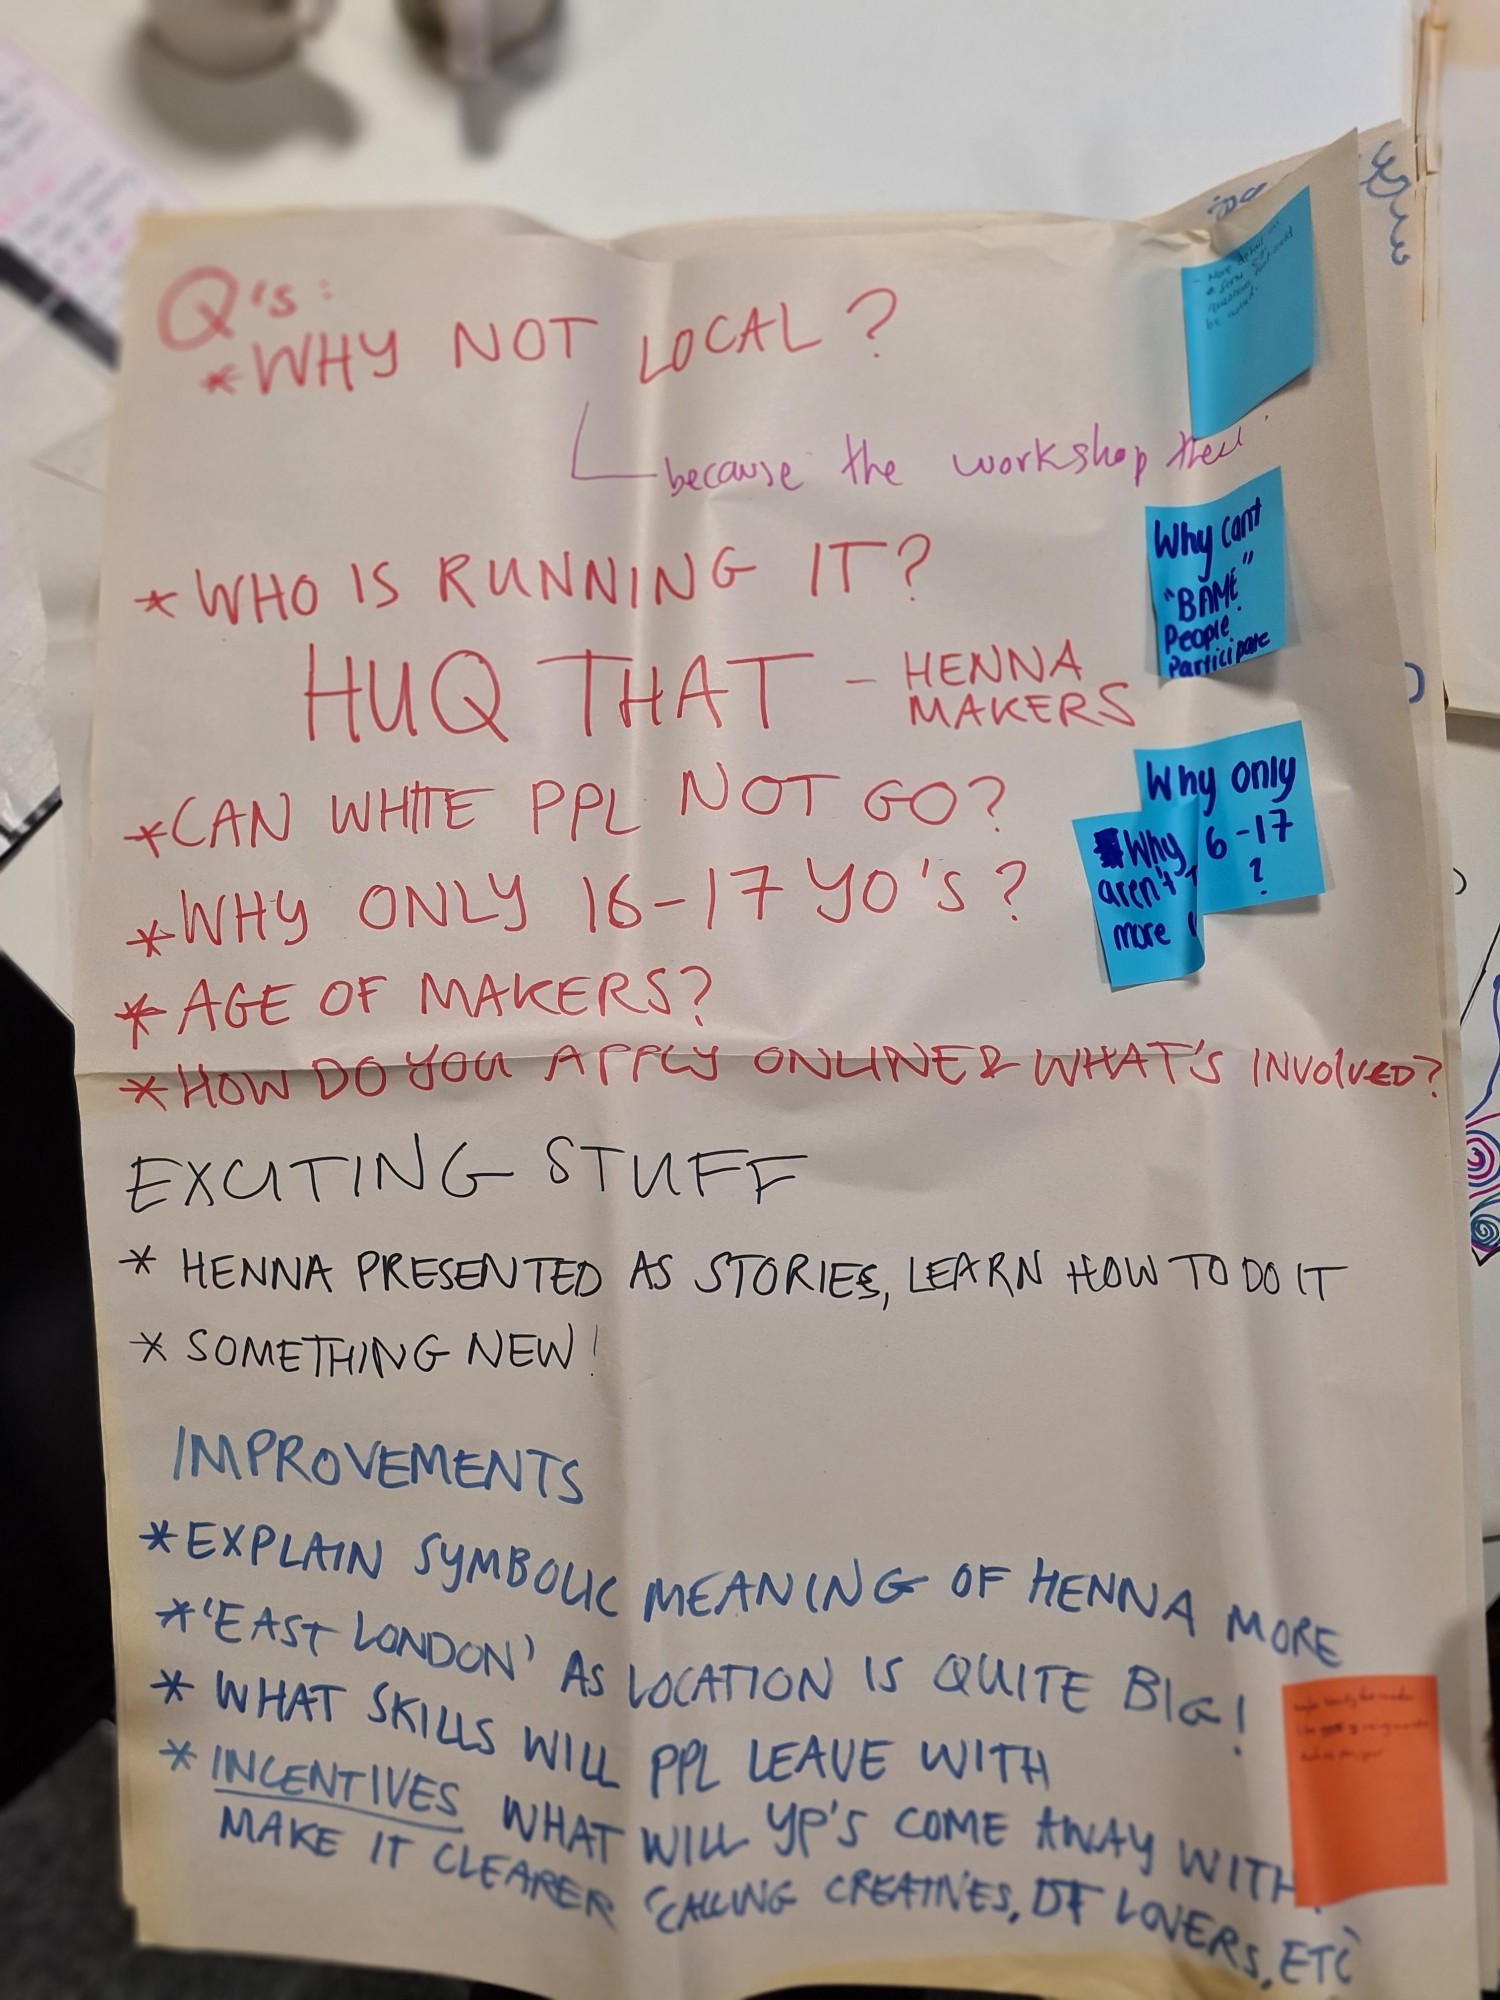 Q's:
*WHY NOT LOCAL?
because the workshop
*WHO IS RUNNING IT?
HUQ THAT - HENNA
MAKERS
*CAN WHITE PPL NOT GO?
*WHY ONLY 16-17 YO'S?
*AGE OF MAKERS?
*HOW DO YOU APPLY ONLINE & WHAT'S INVOLVED?
- More detail
be
Why can't
"BAME"
People
Participate
Why only
6-17
?
Why
aren't
more
EXCITING STUFF
* HENNA PRESENTED AS STORIES, LEARN HOW TO DO IT
* SOMETHING NEW!
IMPROVEMENTS
*EXPLAIN SYMBOLIC MEANING OF HENNA MORE
*'EAST LONDON' AS LOCATION IS QUITE BIG!
* WHAT SKILLS WILL PPL LEAVE WITH
* INCENTIVES WHAT WILL YP'S COME AWAY WITH
MAKE IT CLEARER 'CALLING CREATIVES, DT LOVERS, ETC